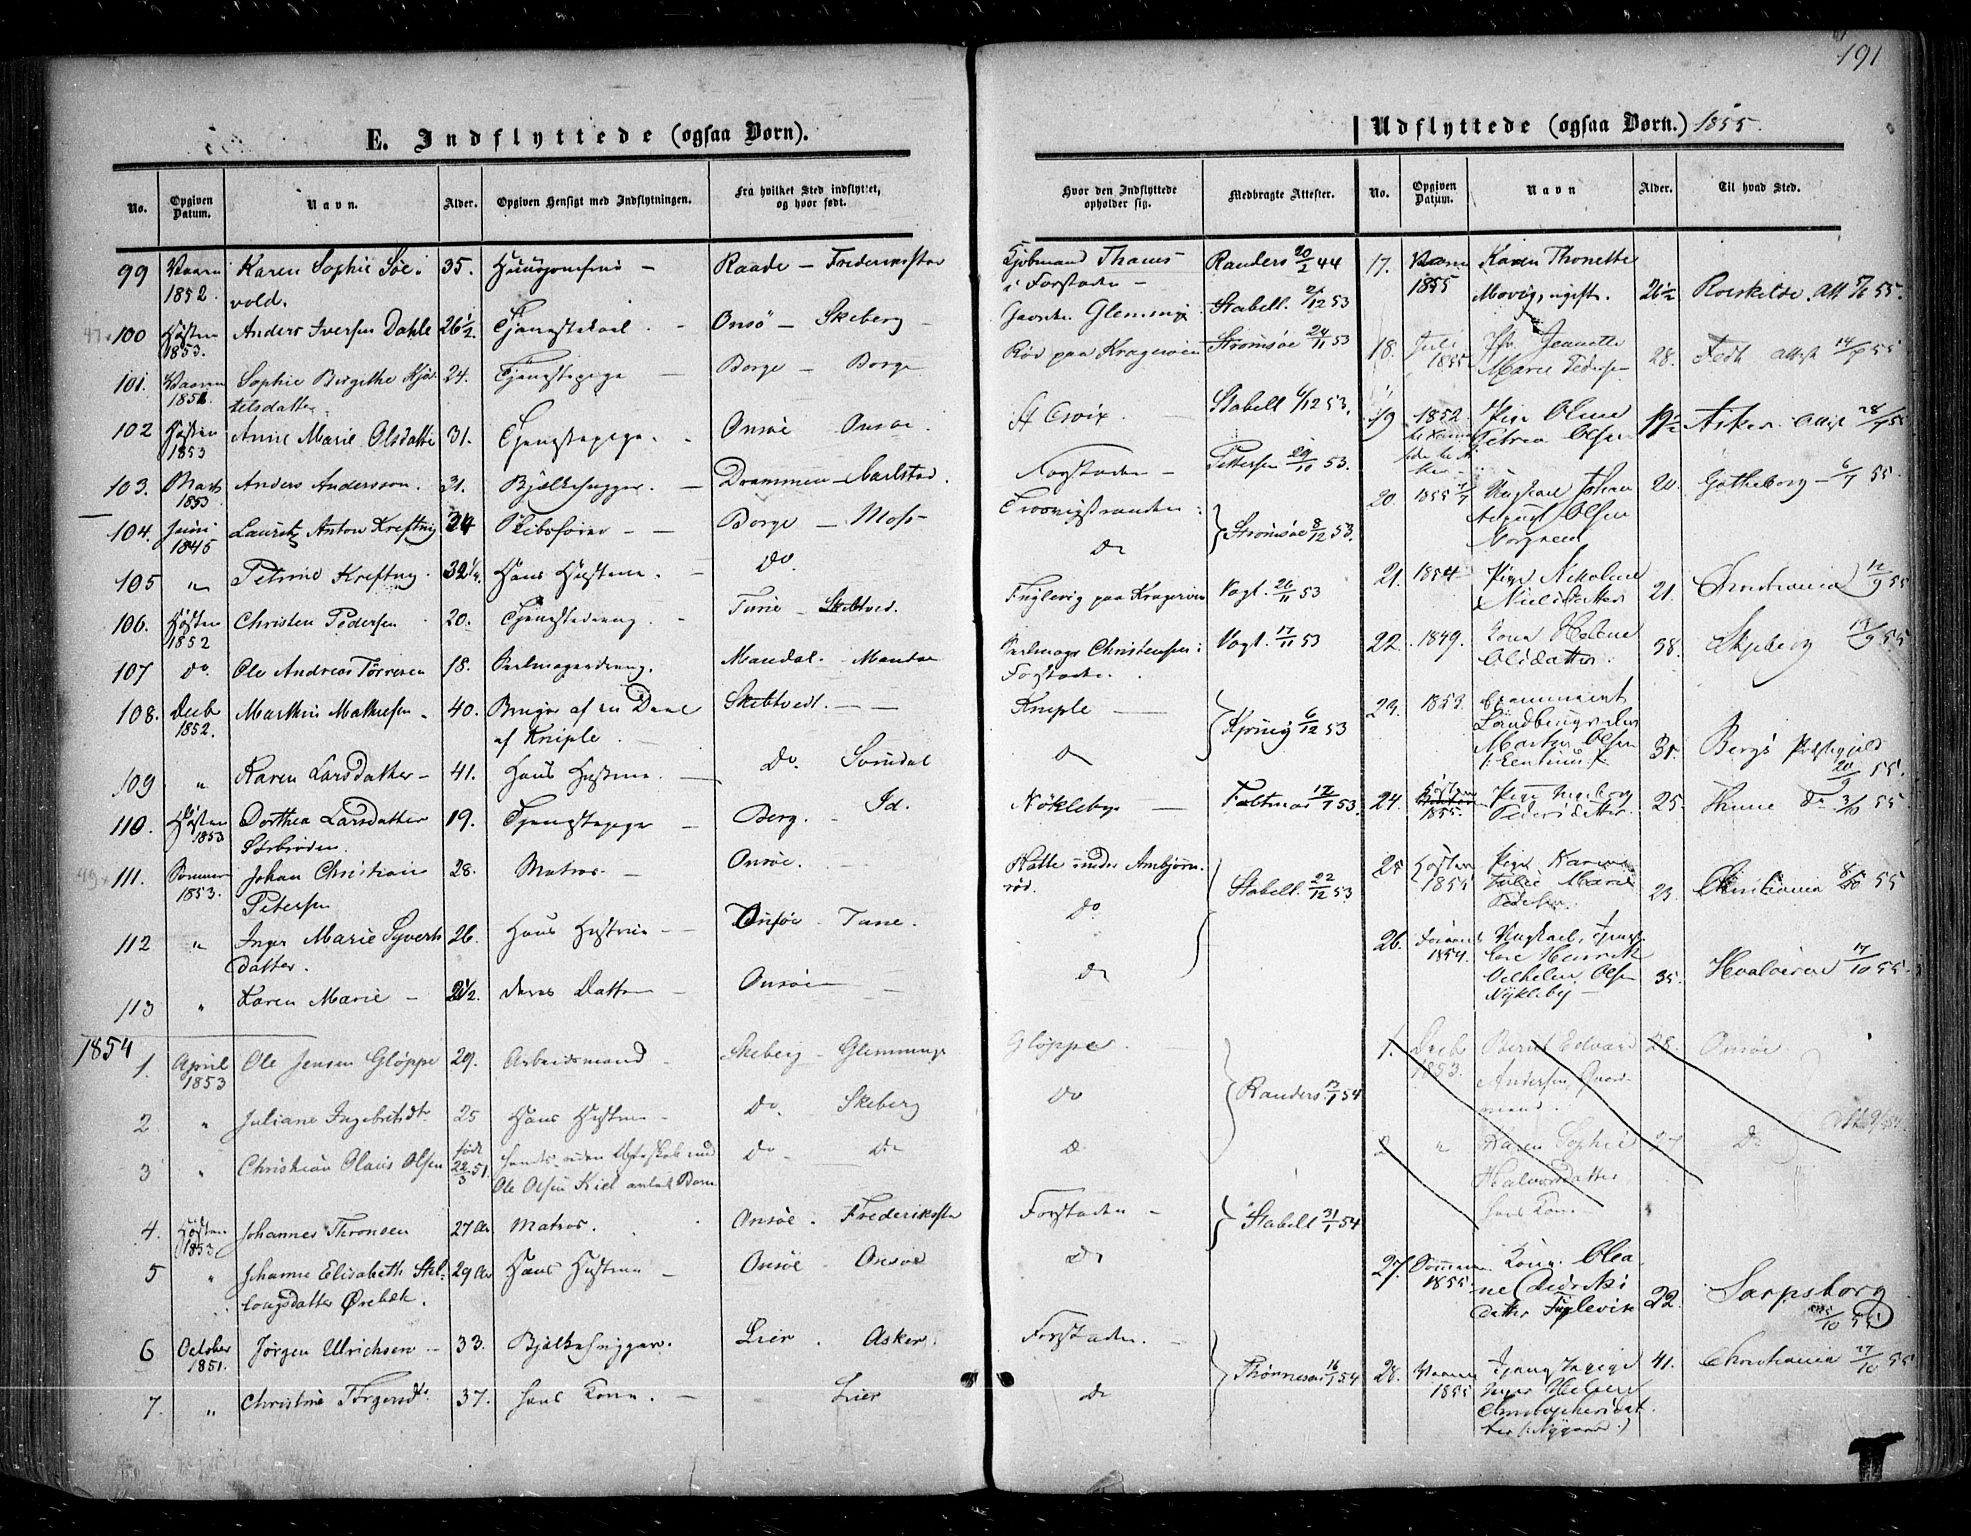 191
E. Indflyttede (ogsaa Børn).
No. Opgiven Datum. Navn. Alder. Opgiven Hensigt med Indflytningen. Fra hvilket Sted indflyttet, og hvor født.
99 Vaaren 1852. Karen Sophie Søe- 35. Huusjomfrue - Raade - Frederiksstad
vold.
100 Høsten 1853. Anders Iversen Dahle 26 1/2. Tjenestekarl. - Onsö - Skeberg -
101. Vaaren 1852. Sophie Birgithe Kjø- 24. Tjenestepige - Borge - Borge
telsdatter.
102 Høsten 1853 Anne Marie Olsdatter 31. Tjenestepige. - Onsøe Onsøe.
103. Marts 1853 Anders Andersson. 31. Bjelkehugger. - Drammen - Carlstad.
104. Juni 1845 Lauritz Anton Kreftning 34 Skibsfører - - Borge - Moss
105 " Petrine Kreftng. 32 1/4. Hans Hustrue. - Do.
106. Høsten 1852 Christen Pedersen. 20. Tjenestedreng. - Tune - Skibtved.
107 do. Ole Andreas Tørresen 18. Seilmagerdreng. Mandal. Mandal
108. Decbr 1852. Marthin Mathesen. 40. Bruger af en Deel Skibtvedt. - -
af Kniple.
109 " Karen Larsdatter - 41. Hans Hustrue. - Do. Somdal
110. Høsten 1853 Dorthea Larsdatter 19. Tjenestepige - Berg. - Id.
Sorbrøden.
111. Sommer 1853. Johan Christian 28. Matros. - Onsøe. -
Petersen
112 " Inger Marie Syverts 26. Hans Hustrue - Onsøe - Tune.
datter.
113 " Karen Marie - 2 1/2. deres Datter - Onsøe - -
1854
1. April 1853 Ole Jensen Glöppe 29. Arbeidsmand - Skeberg - Glemminge
2 " Juliane Ingebretsdtr 25 Hans Hustrue - Do. Skeberg
3 " Christian Olaus Olsen født 22/3 51. do - do
Ole Olsen Barn
4. Høsten 1853 Johannes Thronsen 27 Aar Matros. Onsøe. Frederiksstad
5 " Johanne Elisabeth Stel- 29 Aar Hans Hustrue - Onsöe - Onsöe
longsdatter Ørebæk.
6 October 1851. Jørgen Ulrichsen - 33. Bjelkehugger. - Lier. Asker.
7. " Christine Thrgersdtr 37. Hans Kone. - Lier
Hvor den Indflyttede opholder sig. Medbragte Attester.
Kjøbmand Thaus Randers 20/2 44
i Forstaden -
Glemminge. Stabell. 21/12 53
Röd paa Kragerøen Stromsøe 24/11 53
St Croix. Stabell 6/12 53.
Forstaden - Pettersen 29/10 53.
Trosvigstranden.
do Stromsøe 8/12 53.
Fuglevig paa Kragerøen Vogt. 26/11 53
Seilmager Christensen i Vogt. 17/11 53
Forstaden.
Kniple -
do 6/12 53
Nökleby - 17/1 53
Hatte under Ambjørn-
rød. Stabell. 22/12 53
Do
do
Glöppe.
do Randers. 13/1 54
do
Forstaden - Stabell 31/1 54
do
Forstaden. -
do Thønnesen 16/1 54
Udflyttede (ogsaa Børn.) 1855.
No. Opgiven Datum. Navn Alder. Til hvad Sted.
17. Vaaren 1855 Karen Thonette
Movig, ugift. 26 1/2 Roeskilde. Att 55.
18. Juli 1855 Jfr. Jeanette
Marie Pedersen 28. Fedt Attest 14/7 55
19 1852. Pige Oline
Petrea Olsen 19 1/2 Asker. Attest 28/7 55
20. 1855 Ungkarl Johan
August Olsen
Norgreen 20. Gøtheborg - 6/7 55
21. 1854 Pige Nikoline
Nielsdatter 21. Christiania 12/9 55
22. 1849. Kone Helene
Olsdatter 38. Skjeberg 14/9 55
23. 1853. Examineret
Landbrugs
Martin Olsen 31. Bergs Præstegjeld
20/9 55.
24. Høsten 1855. Pige Ingeborg
Pedersdatter. 25. Thune Do 3/10 55
25 Høsten 1854 Pige Karen
Julie Marie
Pedersen 23. Christiania 8/10 55
26. 1854. Ungkarl, Tjenest.
Henrik
Vilhelm Olsen
Nykleby - 35. Hvaløerne 17/10 55
1. Decbr 1853. Bernt Edvard 28. Onsøe.
Andersen,
mand.
2 " Karen Sophie do
Halvorsdatter
hans Kone
27. Sommeren 1855. Kone Olea-
ne Didriks-
datter Fuglevik 22. Sarpsborg
28. Vaaren 1855 Tjenestepige 41. Christiania 27/10 55
Inger Helene
Christophersdat-
ter (: Nygaard :)